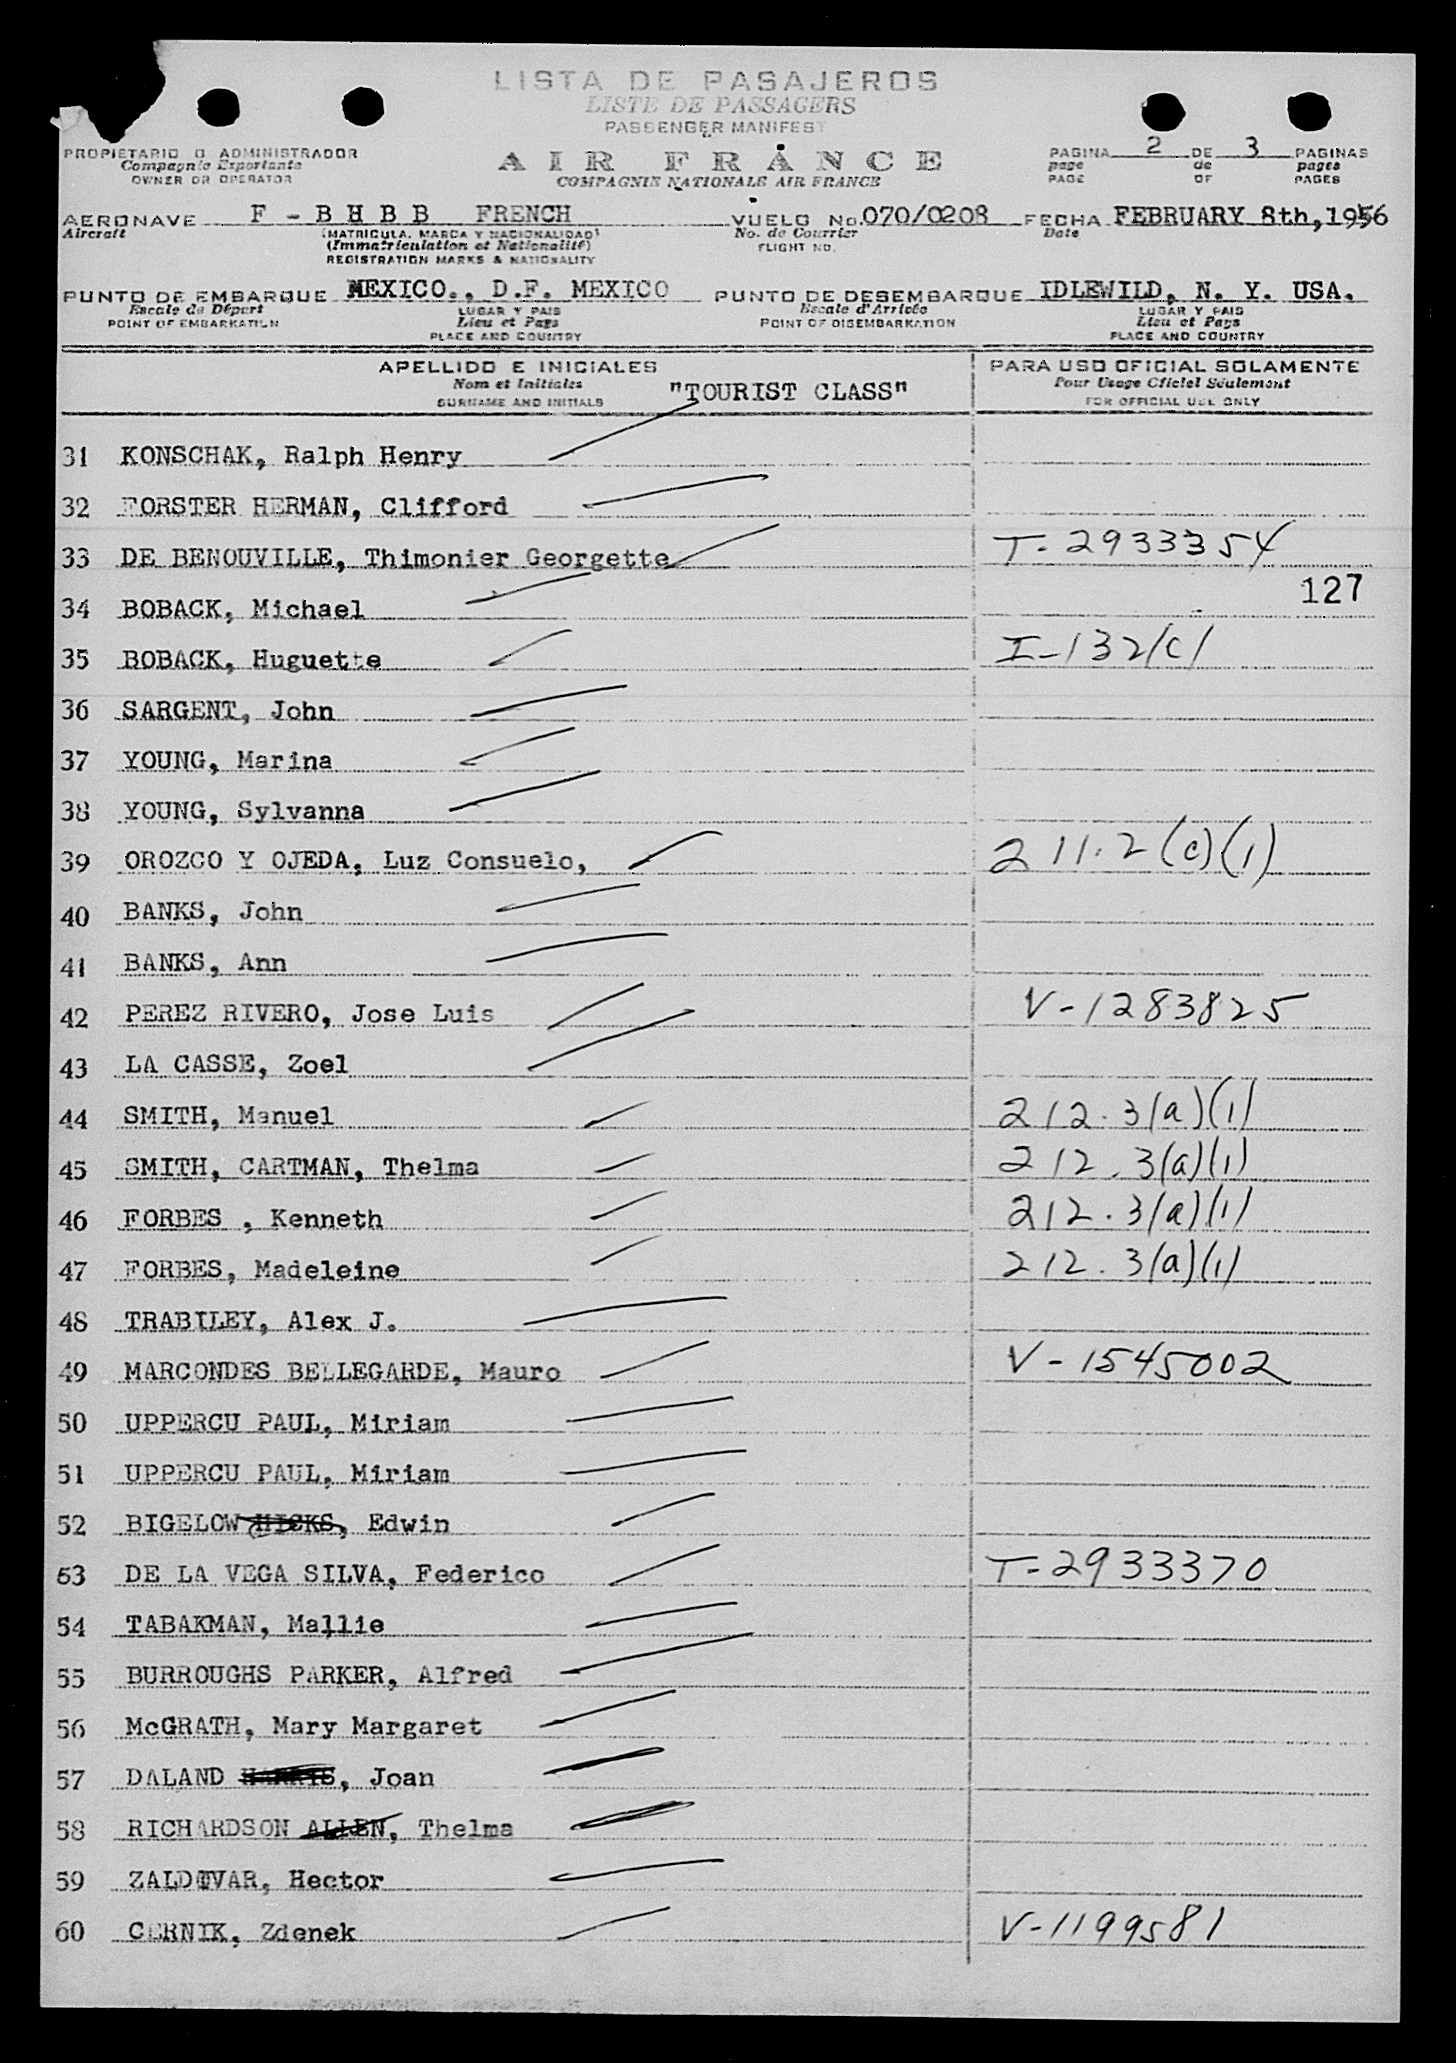 LISTA DE PASAJEROS
LISTE DE PASSAGERS
PASSENGER MANIFEST
PROPIETARIO O ADMINISTRADOR
Compagnie Exportante
OWNER OR OPERATOR
AIR FRANCE
COMPAGNIE NATIONALE AIR FRANCE
PAGINA 2 DE 3 PAGINAS
page de pages
PAGE OF PAGES
AERONAVE F - B H B B FRENCH VUELO No. 070/0208 FECHA FEBRUARY 8th, 1956
Aircraft (MATRICULA, MARCA Y NACIONALIDAD) No. de Courrier Date
(Immatriculation et Nationalité) FLIGHT NO.
REGISTRATION MARKS & NATIONALITY
PUNTO DE EMBARQUE MEXICO., D.F. MEXICO PUNTO DE DESEMBARQUE IDLEWILD, N. Y. USA.
Escale de Départ LUGAR Y PAIS Escale d'Arrivée LUGAR Y PAIS
POINT OF EMBARKATION Lieu et Pays POINT OF DISEMBARKATION Lieu et Pays
PLACE AND COUNTRY PLACE AND COUNTRY
APELLIDO E INICIALES PARA USO OFICIAL SOLAMENTE
Nom et Initiales "TOURIST CLASS" Pour Usage Officiel Seulement
SURNAME AND INITIALS FOR OFFICIAL USE ONLY
31 KONSCHAK, Ralph Henry
32 FORSTER HERMAN, Clifford
33 DE BENOUVILLE, Thimonier Georgette T-2933354
34 BOBACK, Michael 127
35 BOBACK, Huguette I-132(c)
36 SARGENT, John
37 YOUNG, Marina
38 YOUNG, Sylvanna
39 OROZCO Y OJEDA, Luz Consuelo, 211.2(c)(1)
40 BANKS, John
41 BANKS, Ann
42 PEREZ RIVERO, Jose Luis V-1283825
43 LA CASSE, Zoel
44 SMITH, Manuel 212.3(a)(1)
45 SMITH, CARTMAN, Thelma 212.3(a)(1)
46 FORBES , Kenneth 212.3(a)(1)
47 FORBES, Madeleine 212.3(a)(1)
48 TRABILEY, Alex J.
49 MARCONDES BELLEGARDE, Mauro V-1545002
50 UPPERCU PAUL, Miriam
51 UPPERCU PAUL, Miriam
52 BIGELOW HICKS, Edwin
53 DE LA VEGA SILVA, Federico T-2933370
54 TABAKMAN, Mallie
55 BURROUGHS PARKER, Alfred
56 McGRATH, Mary Margaret
57 DALAND HARRIS, Joan
58 RICHARDSON ALLEN, Thelma
59 ZALDIVAR, Hector
60 CERNIK, Zdenek V-1199581